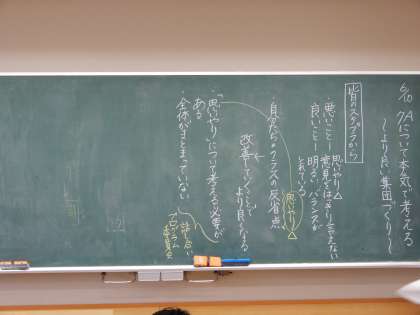 7Aについて本気で考える
〜より良い集団づくり〜
皆のスタプラから
・悪いこと―思いやり△
意見をはっきり言えない
良いこと―明るい、バランスが
とれている
思いやり△
・自分たちのクラスの反省点
改善していくことで
より良くなる
・「思いやり」について考える必要が
ある
・全体がまとまっていない
話し合い
プログラム
委員会